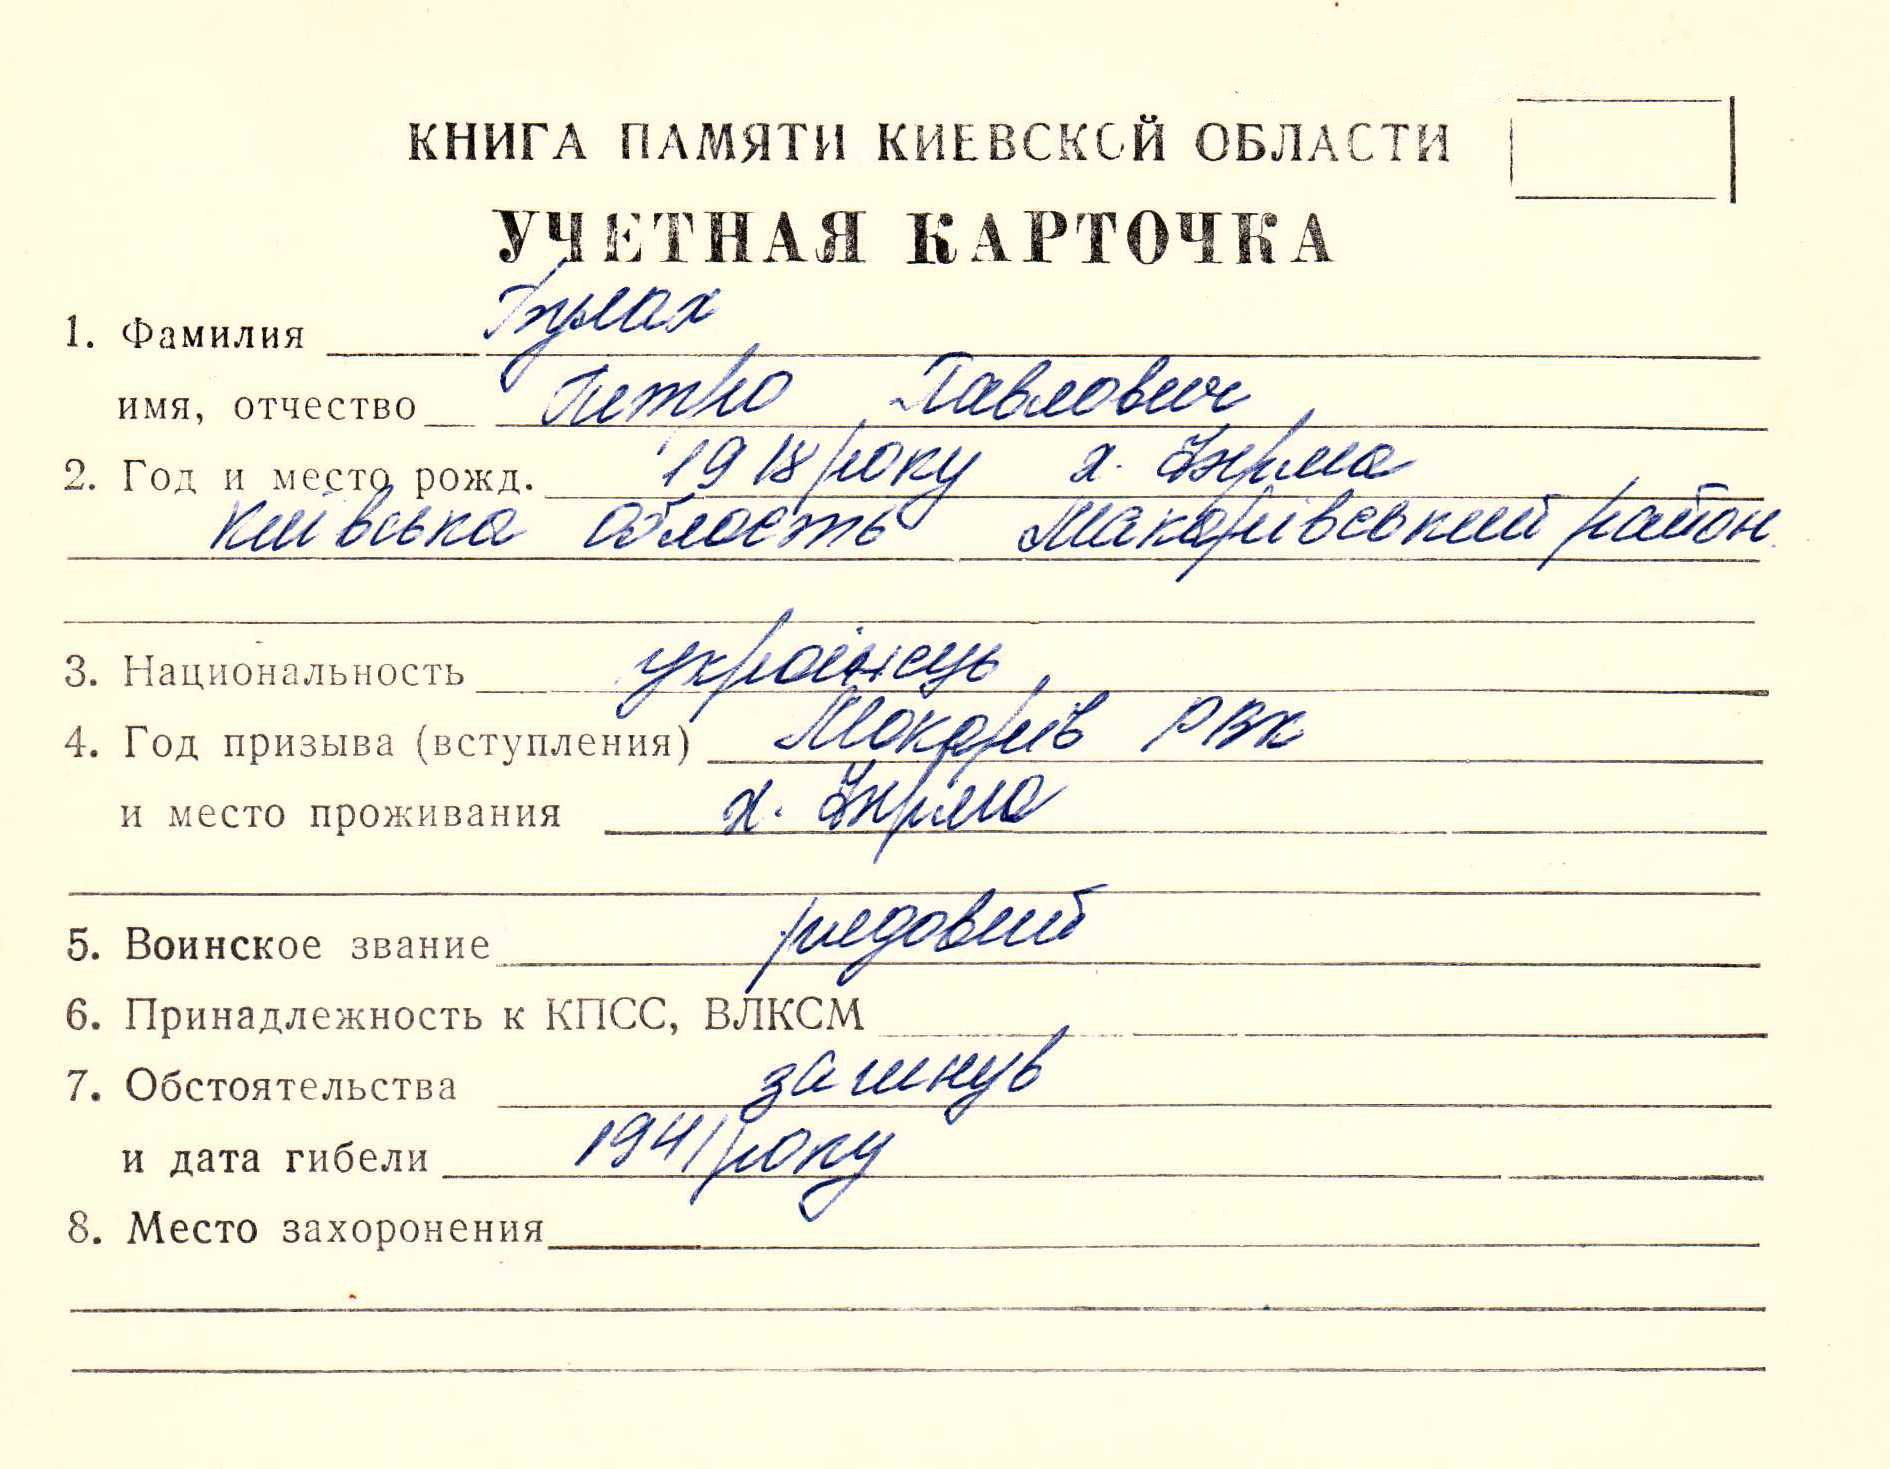 КНИГА ПАМЯТИ КИЕВСКОЙ ОБЛАСТИ
УЧЕТНАЯ КАРТОЧКА
1. Фамилия Булах
имя, отчество Петро Павлович
2. Год и место рожд. 1918 року х.
Київська область Макарівський район
3. Национальность українець
4. Год призыва (вступления) Макарів РВК
и место проживания х.
5. Воинское звание рядовий
6. Принадлежность к КПСС, ВЛКСМ
7. Обстоятельства загинув
и дата гибели 1941 року
8. Место захоронения